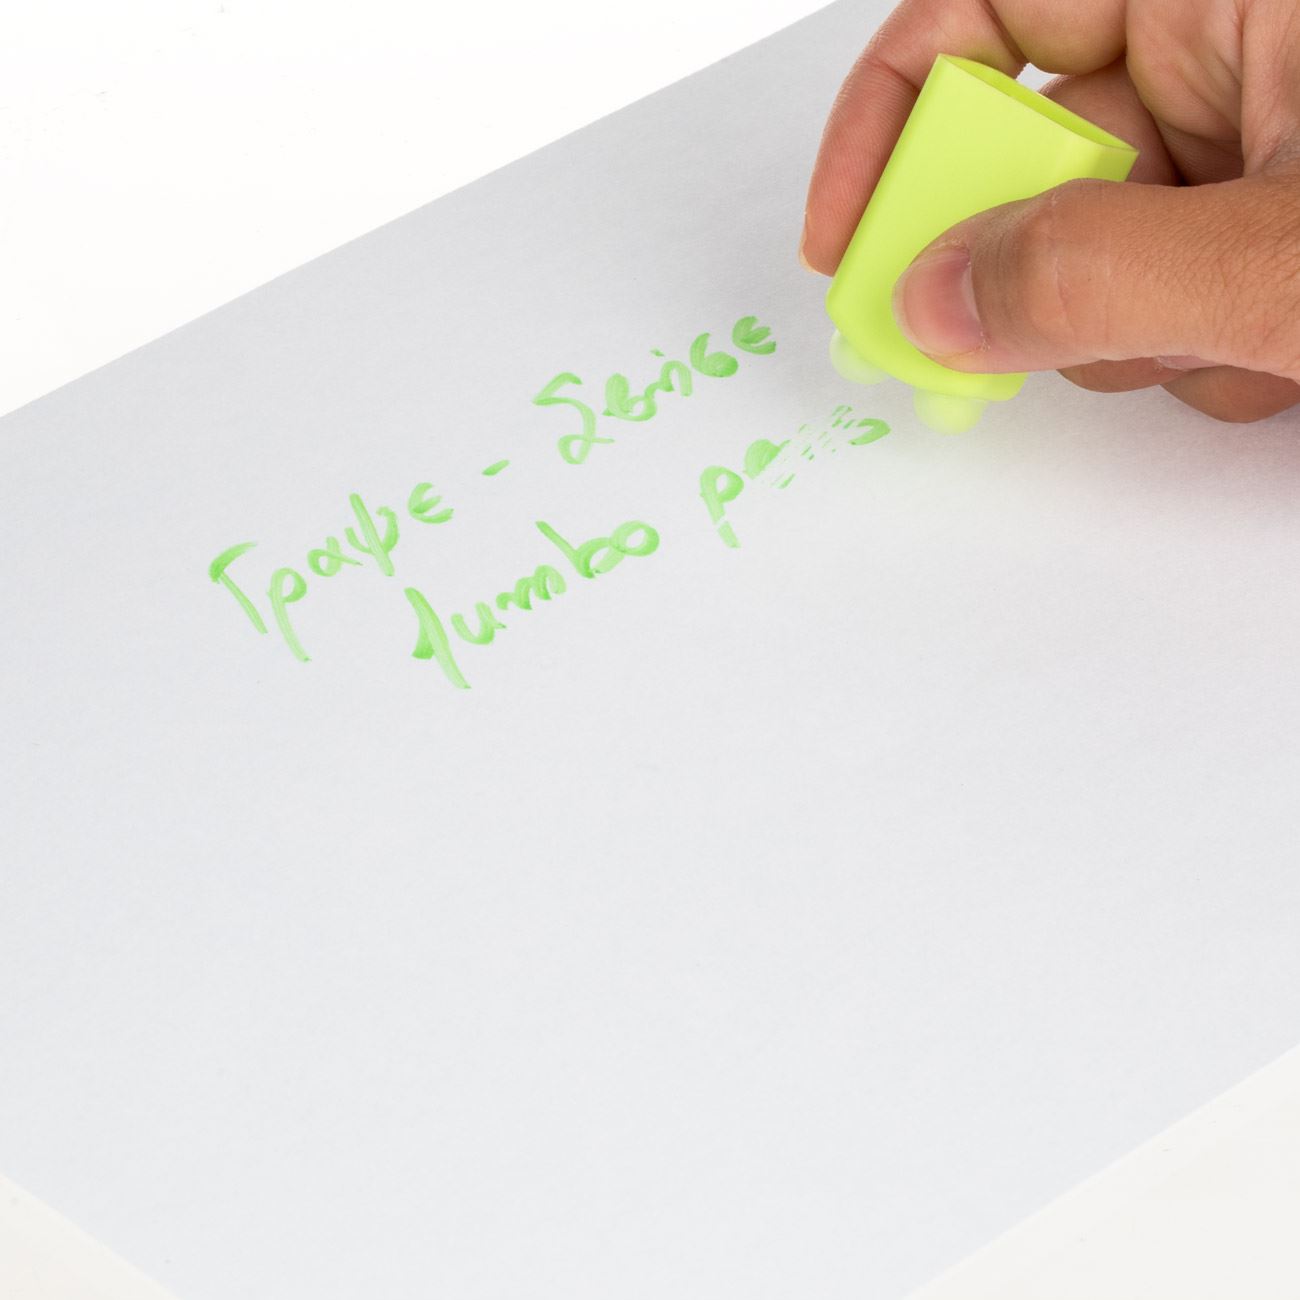 Γραψε - Σβήσε
Jumbo